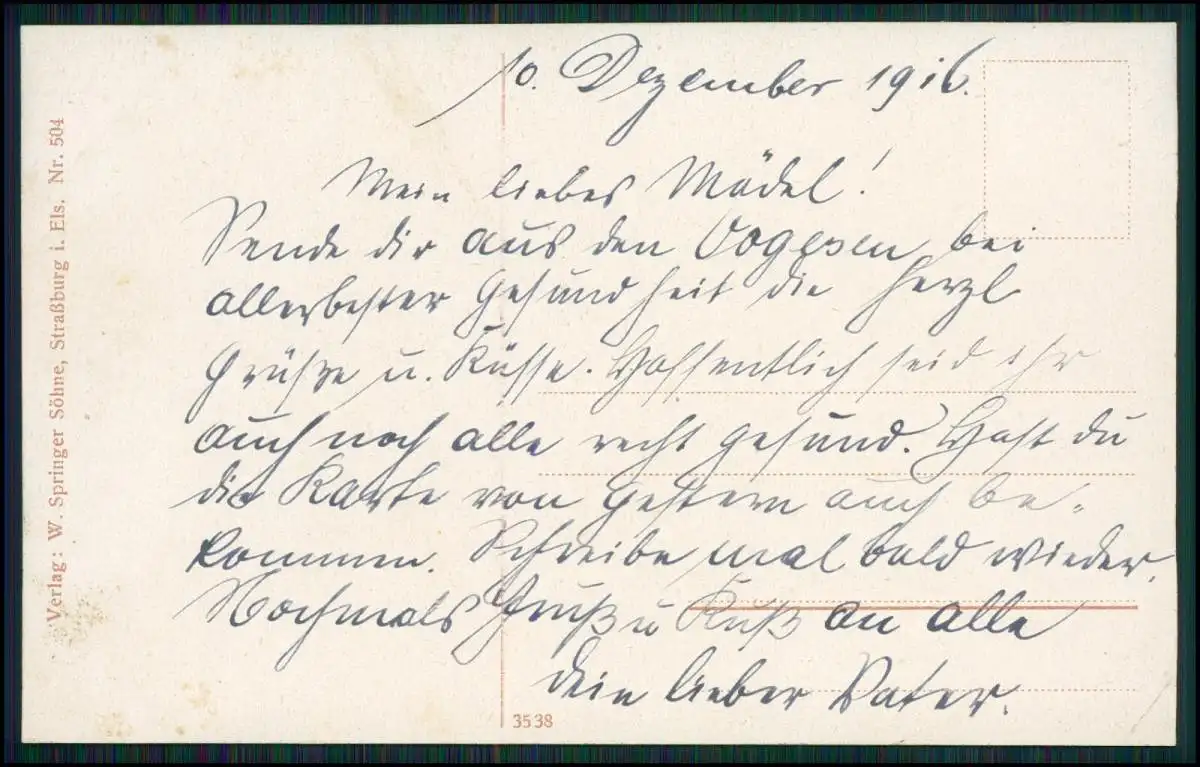 10. Dezember 1916.
Mein liebes Mädel!
Sende dir aus den Vogesen bei
allerbester Gesundheit die herzl
Grüße u. Küsse. Hoffentlich seid ihr
auch noch alle recht gesund. Hast du
die Karte von gestern auch be-
kommen. Schreibe mal bald wieder.
Nochmals Gruß u Kuß an alle
dein lieber Vater.
Verlag: W. Springer Söhne, Straßburg i. Els. Nr. 504
3538